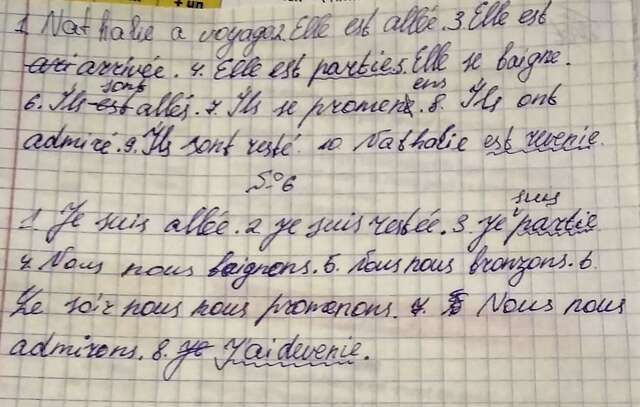 + un
1. Nathalie a voyagé 2. Elle est allée. 3. Elle est
arrivée. 4. Elle est partie 5. Elle se baigne.
sont ens
6. Ils est allés. 7. Ils se promen. 8. Ils ont
admiré. 9. Ils sont resté. 10. Nathalie est revenie.
№6
suis
1. Je suis allée. 2 Je suis restée. 3. Je partie
4. Nous nous baignons. 5. Nous nous bronzons. 6.
Le soir nous nous promenons. 7. Nous nous
admirons. 8. J'ai devenie.